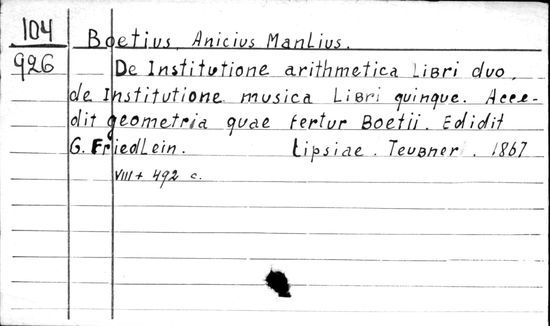 104 Boetius, Anicius Manlius.
926 De Institutione arithmetica Libri duo,
de Institutione musica Libri quinque. Acce-
dit geometria quae fertur Boetii. Edidit
G. Friedlein. Lipsiae. Teubner. 1867
VIII + 492 c.